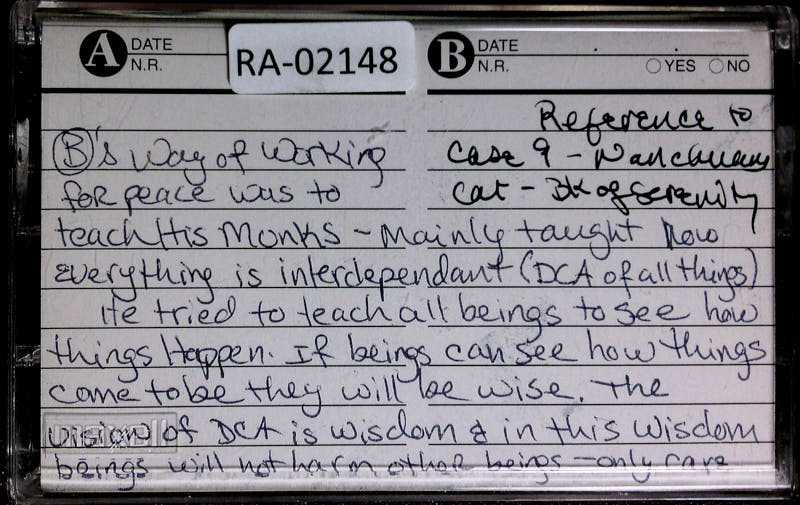 A DATE
N.R.
RA-02148
B DATE
N.R. YES NO
Reference to
Case 9 - Nanchuans
Cat - Bk of Serenity
B's way of working
for peace was to
teach His Monks - Mainly taught how
everything is interdependant (DCA of all things)
He tried to teach all beings to see how
things Happen. If beings can see how things
come to be they will be wise. The
vision of DCA is wisdom & in this wisdom
beings will not harm other beings - only care
maxell